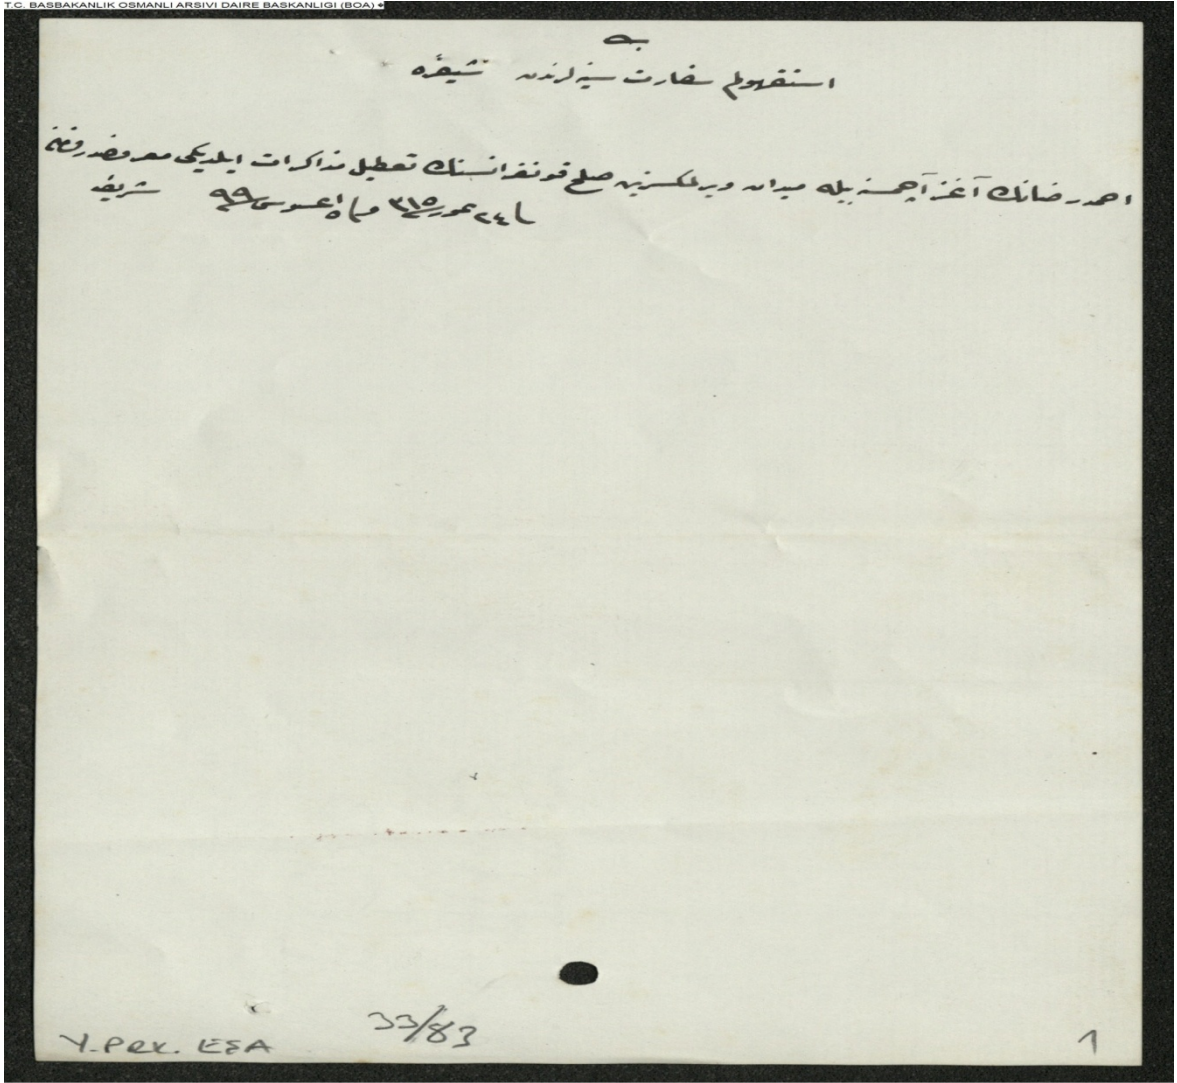 T.C. BASBAKANLIK OSMANLI ARSIVI DAIRE BASKANLIGI (BOA)
استقهولم سفارت سنيه لرندن شيفره
احمد رضانك آغز آچمسنه بيله ميدان ويرلمكسزين صلح قونفرانسنك تعطيل مذاكرات ايلديكى معروضدر فرمان
٢٤ تموز ٣١٥ و ٥ اغستوس ٩٩ شريف
Y.PRK. ESA 33/83 1